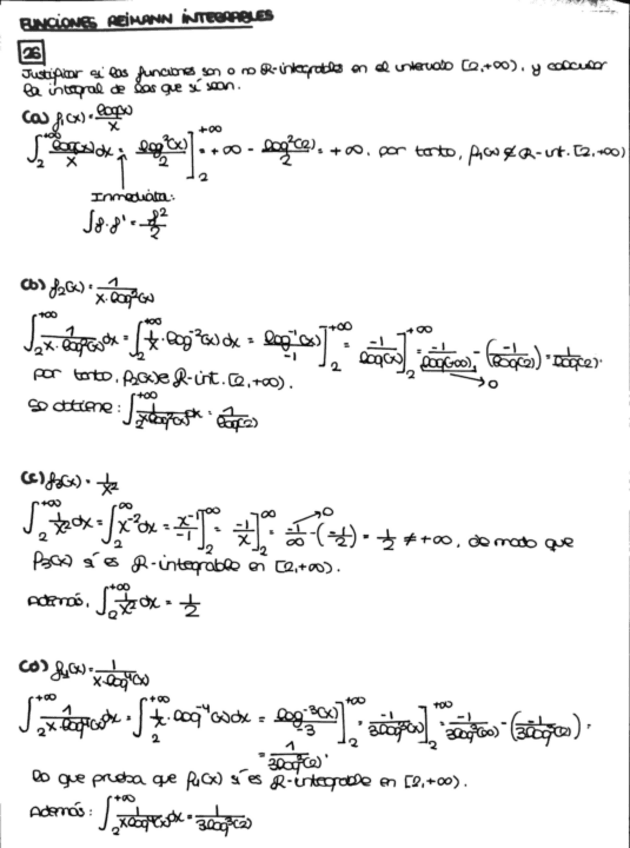 FUNCIONES REIMANN INTEGRABLES
26
Justificar si las funciones son o no R-integrables en el intervalo [2,+∞), y calcular
la integral de las que sí sean.
(a) f₁(x) = log(x)/x
∫₂^{+∞} log(x)/x dx = log²(x)/2 ]₂^{+∞} = +∞ - log²(2)/2 = +∞. por tanto, f₁(x) ∉ R-int. [2,+∞)
Inmediata:
∫f·f' = f²/2
(b) f₂(x) = 1/(x·log²(x))
∫₂^{+∞} 1/(x·log²(x)) dx = ∫₂^{+∞} 1/x · log⁻²(x) dx = log⁻¹(x)/-1 ]₂^{+∞} = -1/log(x) ]₂^{+∞} = -1/log(+∞) - (-1/log(2)) = 1/log(2).
→0
por tanto, f₂(x) ∈ R-int. [2,+∞).
Se obtiene: ∫₂^{+∞} 1/(x log²(x)) dx = 1/log(2)
(c) f₃(x) = 1/x²
∫₂^{+∞} 1/x² dx = ∫₂^{∞} x⁻² dx = x⁻¹/-1 ]₂^{∞} = -1/x ]₂^{∞} = -1/∞ →0 - (-1/2) = 1/2 ≠ +∞, de modo que
f₃(x) sí es R-integrable en [2,+∞).
Además, ∫₂^{+∞} 1/x² dx = 1/2
(d) f₄(x) = 1/(x·log⁴(x))
∫₂^{+∞} 1/(x·log⁴(x)) dx = ∫₂^{+∞} 1/x · log⁻⁴(x) dx = log⁻³(x)/-3 ]₂^{+∞} = -1/(3log³(x)) ]₂^{+∞} = -1/(3log³(∞)) - (-1/(3log³(2))) =
= 1/(3log³(2)).
lo que prueba que f₄(x) sí es R-integrable en [2,+∞).
Además: ∫₂^{+∞} 1/(x log⁴(x)) dx = 1/(3log³(2))